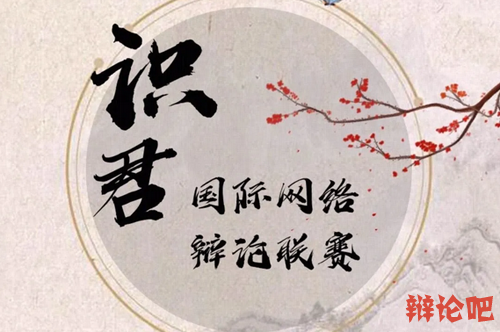 识君
国际网络
辩论联赛
辩论吧